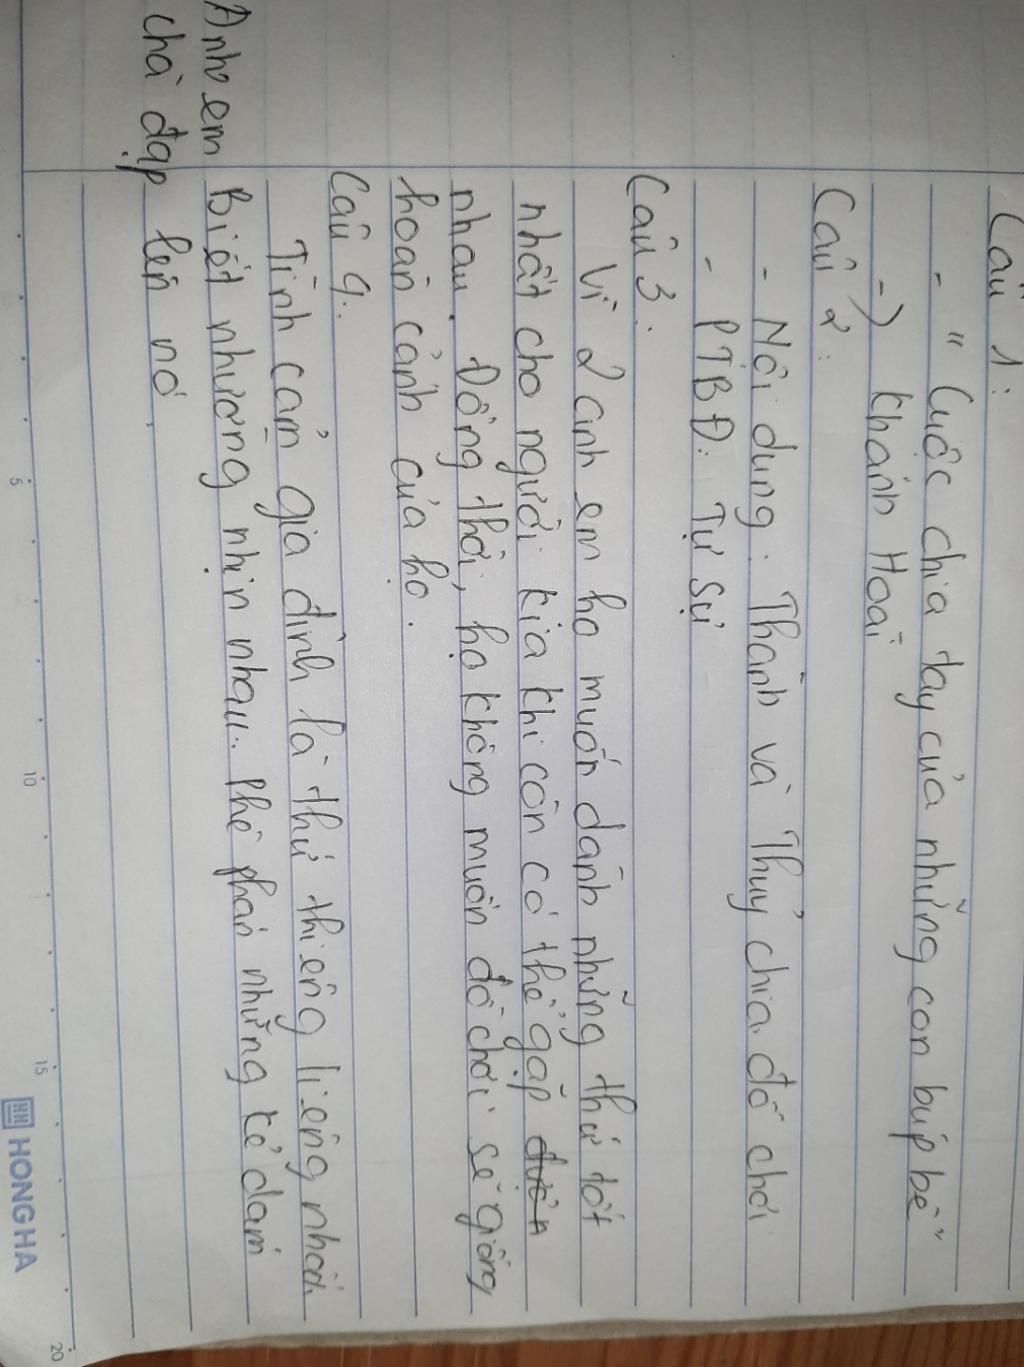 Câu 1:
- "Cuộc chia tay của những con búp bê"
-) Khánh Hoài
Câu 2:
- Nội dung: Thành và Thuỷ chia đồ chơi
- PTBĐ: Tự sự
Câu 3:
Vì 2 anh em họ muốn dành những thứ tốt
nhất cho người kia khi còn có thể gặp
nhau. Đồng thời, họ không muốn đồ chơi sẽ giống
hoàn cảnh của họ.
Câu 4:
Tình cảm gia đình là thứ thiêng liêng nhất.
Anh em Biết nhương nhịn nhau. Phê phán những kẻ dám
chà đạp lên nó.
5
10
15
20
HH HONG HA